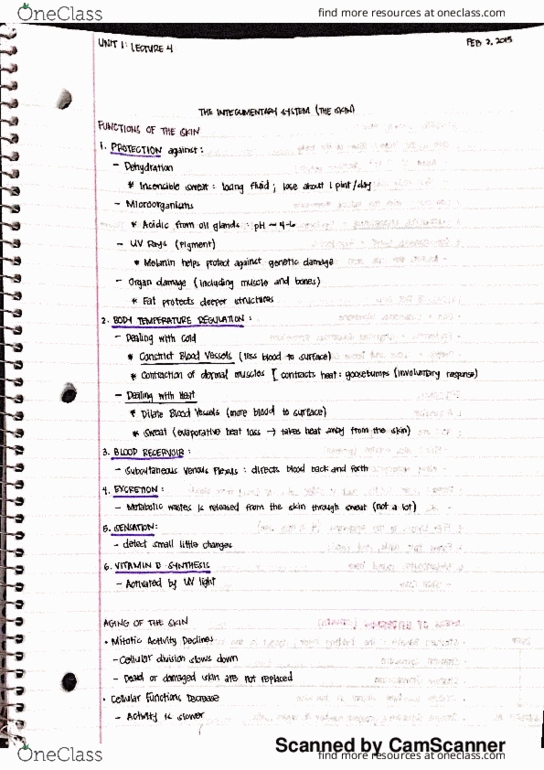 OneClass
find more resources at oneclass.com
UNIT 1: LECTURE 4
FEB 2, 2015
THE INTEGUMENTARY SYSTEM (THE SKIN)
FUNCTIONS OF THE SKIN
1. PROTECTION against:
- Dehydration
* Insensible sweat: losing fluid; lose about 1 pint/day
- Microorganisms
* Acidic from oil glands: pH ~ 4-6
- UV Rays (Pigment)
* Melanin helps protect against genetic damage
- Organ damage (including muscle and bones)
* Fat protects deeper structures
2. BODY TEMPERATURE REGULATION:
- Dealing with Cold
* Constrict Blood Vessels (less blood to surface)
* Contraction of dermal muscles [ contracts heat: goosebumps (involuntary response)
- Dealing with Heat
* Dilate Blood Vessels (more blood to surface)
* Sweat (evaporative heat loss → takes heat away from the skin)
3. BLOOD RESERVOIR:
- Subcutaneous Venous Plexus: directs blood back and forth
4. EXCRETION:
- Metabolic wastes is released from the skin through sweat (not a lot)
5. SENSATION:
- detect small little changes
6. VITAMIN D SYNTHESIS
- Activated by UV light
AGING OF THE SKIN
• Mitotic Activity Declines
- Cellular division slows down
- Dead or damaged skin are not replaced
• Cellular Functions Decrease
- Activity is slower
Scanned by CamScanner
OneClass
find more resources at oneclass.com